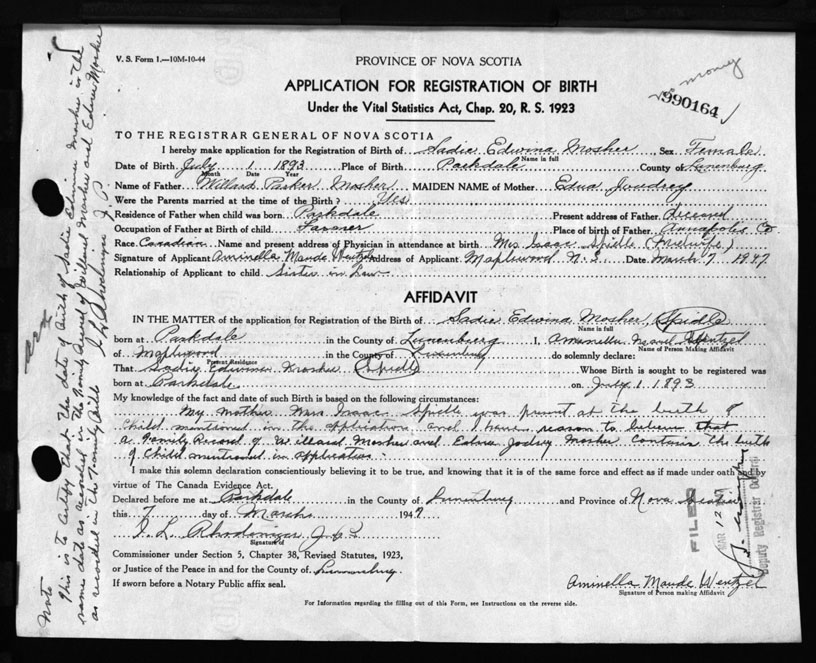 V. S. Form 1.—10M-10-44
PROVINCE OF NOVA SCOTIA
money
APPLICATION FOR REGISTRATION OF BIRTH
990164
Under the Vital Statistics Act, Chap. 20, R. S. 1923
TO THE REGISTRAR GENERAL OF NOVA SCOTIA
I hereby make application for the Registration of Birth of Sadie Edwina Mosher Sex Female
Name in full
Date of Birth July 1 1893 Place of Birth Parkdale County of Lunenburg
Month Date Year
Name of Father Willard Parker Mosher MAIDEN NAME of Mother Edna
Were the Parents married at the time of the Birth? Yes
Residence of Father when child was born Parkdale Present address of Father Deceased
Occupation of Father at Birth of child Farmer Place of birth of Father Annapolis Co
Race Canadian Name and present address of Physician in attendance at birth Mrs Isaac Spidle (Midwife)
Signature of Applicant Aminella Maude Wentzel Address of Applicant Maplewood N. S. Date March 7 1947
Relationship of Applicant to child Sister in Law
AFFIDAVIT
IN THE MATTER of the application for Registration of the Birth of Sadie Edwina Mosher (Spidle)
Name in full
born at Parkdale in the County of Lunenburg I, Aminella Maud Wentzel
Name of Person Making Affidavit
of Maplewood in the County of Lunenburg do solemnly declare:
Present Residence
That Sadie Mosher (Spidle) Whose Birth is sought to be registered was
born at Parkdale on July 1 1893
My knowledge of the fact and date of such Birth is based on the following circumstances:
My mother Mrs Isaac Spidle was present at the birth of
child mentioned in the application and I have reason to believe that
a Family Record of Willard Mosher and Edna Jodrey Mosher contain the birth
of child mentioned in application.
I make this solemn declaration conscientiously believing it to be true, and knowing that it is of the same force and effect as if made under oath and by
virtue of The Canada Evidence Act.
Declared before me at Parkdale in the County of Lunenburg and Province of Nova Scotia
this 7 day of March 1947
J. P.
Signature of
Commissioner under Section 5, Chapter 38, Revised Statutes, 1923,
or Justice of the Peace in and for the County of Lunenburg
If sworn before a Notary Public affix seal.
Aminella Maude Wentzel
Signature of Person making Affidavit
For Information regarding the filling out of this Form, see Instructions on the reverse side.
FILED
MAR 12
Deputy Registrar General
Note
This is to certify that the date of Birth of Sadie Mosher is the
same date as recorded in the Family Record of Willard Mosher and Edna Mosher
as recorded in the Family Bible J. P.